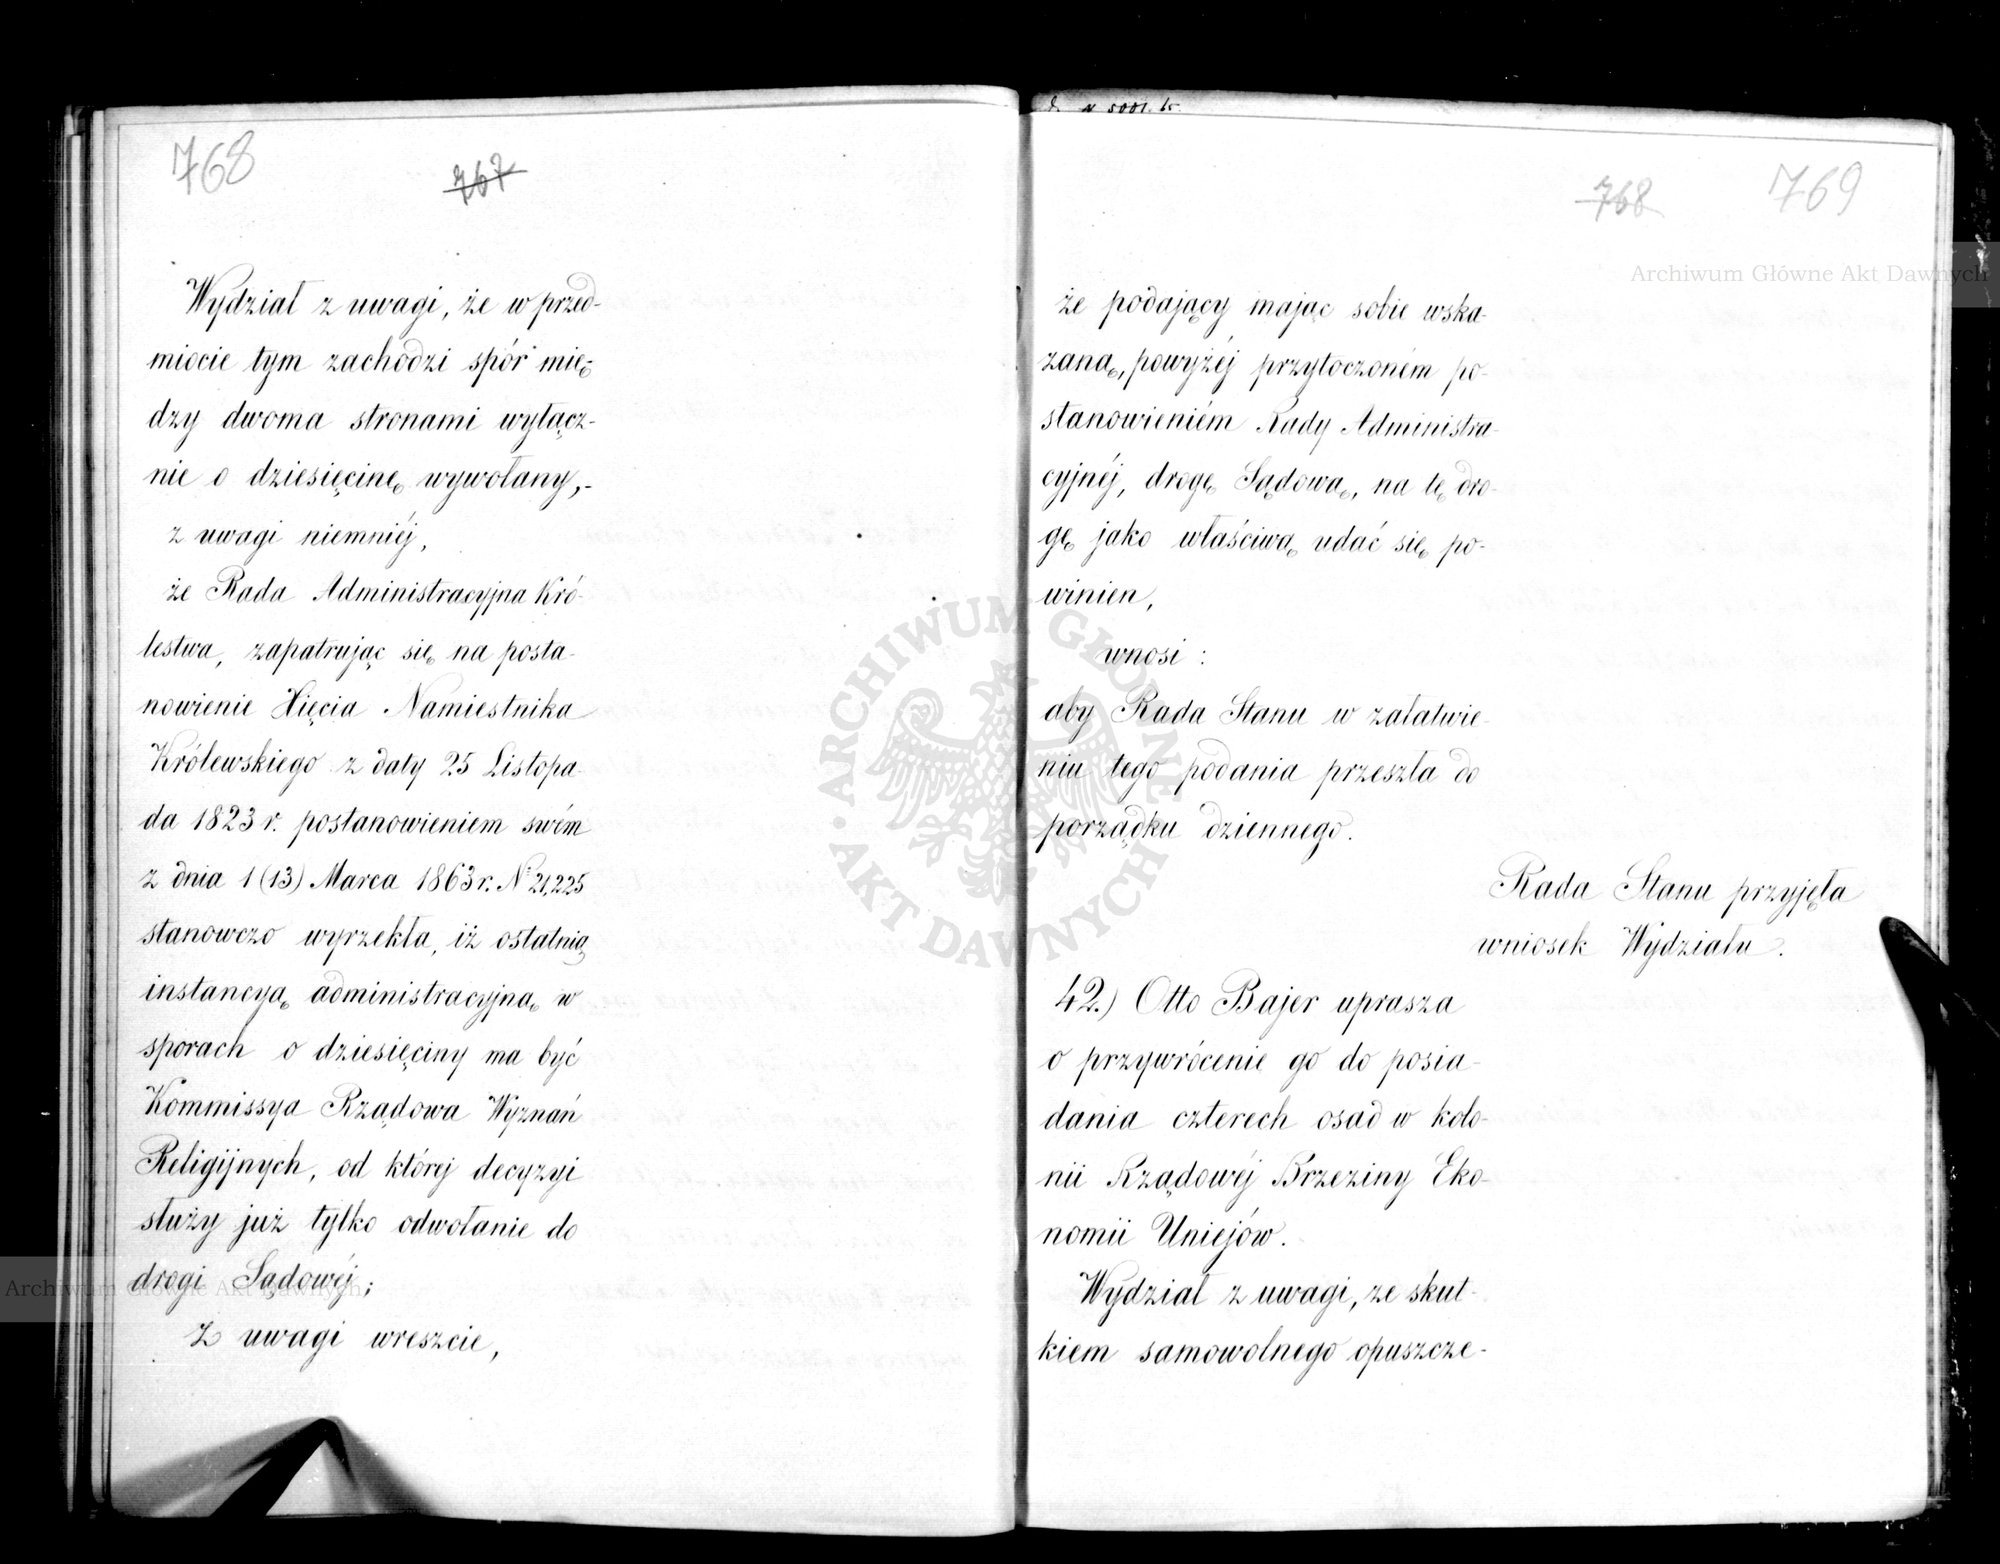 768
767
Wydział z uwagi, że w przed-
miocie tym zachodzi spór mię-
dzy dwoma stronami wyłącz-
nie o dziesięcinę wywołany,-
z uwagi niemniéj,
że Rada Administracyjna Kró-
lestwa, zapatrując się na posta-
nowienie Xięcia Namiestnika
Królewskiego z daty 25 Listopa-
da 1823 r. postanowieniem swém
z dnia 1 (13) Marca 1863 r. No 21,225
stanowczo wyrzekła, iż ostatnią
instancyą administracyjną w
sporach o dziesięciny ma być
Kommissya Rządowa Wyznań
Religijnych, od której decyzyi
służy już tylko odwołanie do
drogi Sądowéj;
Z uwagi wreszcie,
768
769
że podający mając sobie wska-
zaną, powyżéj przytoczoném po-
stanowieniém Rady Administra-
cyjnéj, drogę Sądową, na tę dro-
gę jako właściwą udać się po-
winien,
wnosi:
aby Rada Stanu w załatwie-
niu tego podania przeszła do
porządku dziennego.
Rada Stanu przyjęła
wniosek Wydziału.
42.) Otto Bajer uprasza
o przywrócenie go do posia-
dania czterech osad w kolo-
nii Rządowéj Brzeziny Eko-
nomii Uniejów.
Wydział z uwagi, ze skut-
kiem samowolnego opuszcze-
Archiwum Główne Akt Dawnych
ARCHIWUM GŁÓWNE
AKT DAWNYCH
Archiwum Główne Akt Dawnych